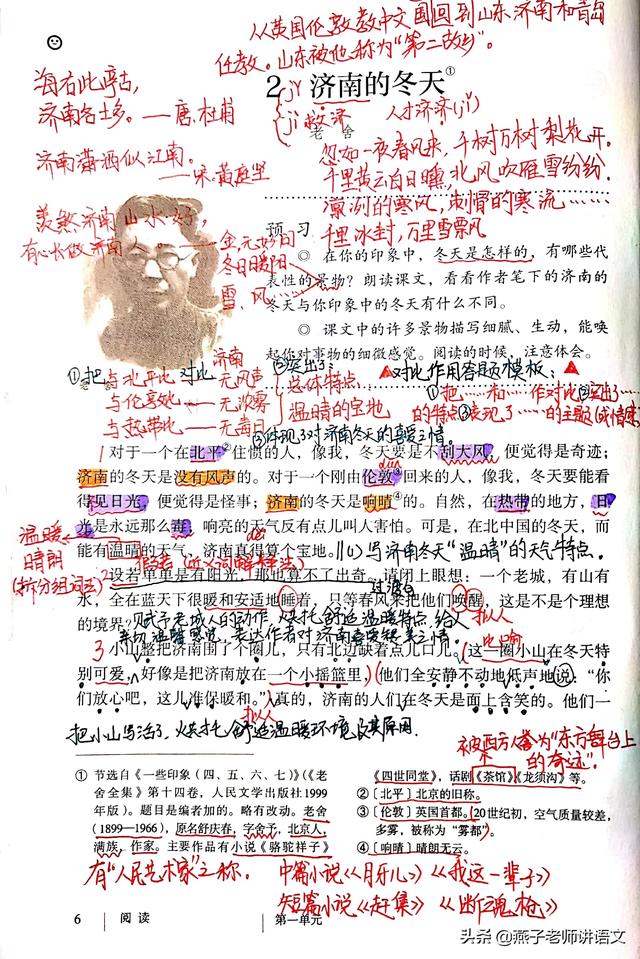 从英国伦敦教中文回到山东济南和青岛
任教。山东被他称为“第二故乡”。
海右此亭古,
济南名士多。——唐.杜甫
济南潇洒似江南。
——宋.黄庭坚
羡煞济南山水好,
有心长做济南人。——金.元好问
冬日暖阳
雪、风
2 济南的冬天①
老 舍
jǐ
jì 救济
人才济济(jǐ)
忽如一夜春风来,千树万树梨花开.
千里黄云白日曛,北风吹雁雪纷纷.
凛冽的寒风,刺骨的寒流……
千里冰封,万里雪飘风
预 习
◎ 在你的印象中,冬天是怎样的,有哪些代
表性的景物?朗读课文,看看作者笔下的济南的
冬天与你印象中的冬天有什么不同。
◎ 课文中的许多景物描写细腻、生动,能唤
起你对事物的细微感觉。阅读的时候,注意体会。
①把
与北平比
与伦敦比
与热带比
对比
济南
无风声
无浓雾
无毒日
②突出了
总体特点
温晴的宝地
③体现了对济南冬天的喜爱之情。
对比作用答题模板:
①把…和…作对比②突出了…
的特点③表现了…的主题(或情感)
1 对于一个在北平②住惯的人,像我,冬天要是不刮大风,便觉得是奇迹;
济南的冬天是没有风声的。对于一个刚由伦敦③回来的人,像我,冬天要能看
得见日光,便觉得是怪事;济南的冬天是响晴④的。自然,在热带的地方,日
光是永远那么毒,响亮的天气反有点儿叫人害怕。可是,在北中国的冬天,而
能有温晴的天气,济南真得算个宝地。
dūn
děi
(1)写济南冬天“温晴”的天气特点.
温暖
晴朗
(拆分组词法)
2 设若单单是有阳光,那也算不了出奇。请闭上眼想:一个老城,有山有
水,全在蓝天下很暖和安适地睡着,只等春风来把他们唤醒,这是不是个理想
的境界?
过渡句
拟人
比喻
3 小山整把济南围了个圈儿,只有北边缺着点儿口儿。这一圈小山在冬天特
别可爱,好像是把济南放在一个小摇篮里,他们全安静不动地低声地说:“你
们放心吧,这儿准保暖和。”真的,济南的人们在冬天是面上含笑的。他们一
拟人
把小山写活了,烘托舒适温暖环境及其原因.
被西方人誉为“东方舞台上
的奇迹”。
① 节选自《一些印象(四、五、六、七)》(《老
舍全集》第十四卷,人民文学出版社1999
年版)。题目是编者加的。略有改动。老舍
(1899—1966),原名舒庆春,字舍予,北京人,
满族,作家。主要作品有小说《骆驼祥子》
《四世同堂》,话剧《茶馆》《龙须沟》等。
②〔北平〕北京的旧称。
③〔伦敦〕英国首都。20世纪初,空气质量较差,
多雾,被称为“雾都”。
④〔响晴〕晴朗无云。
有“人民艺术家”之称.
中篇小说《月牙儿》《我这一辈子》
短篇小说《赶集》《断魂枪》
6 阅读 第一单元
头条@燕子老师讲语文